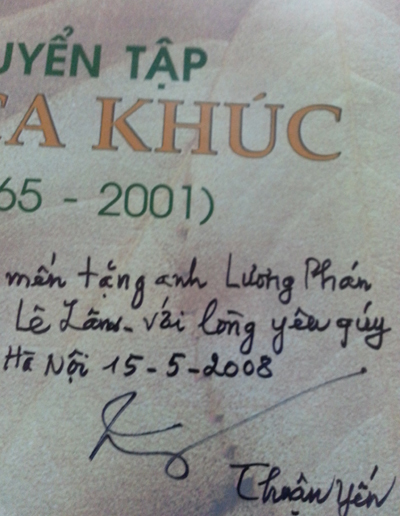 UYỂN TẬP
CA KHÚC
65 - 2001)
mến tặng anh Lương Phán
Lê Lâm - với lòng yêu qúy
Hà Nội 15-5-2008
Thuận Yến